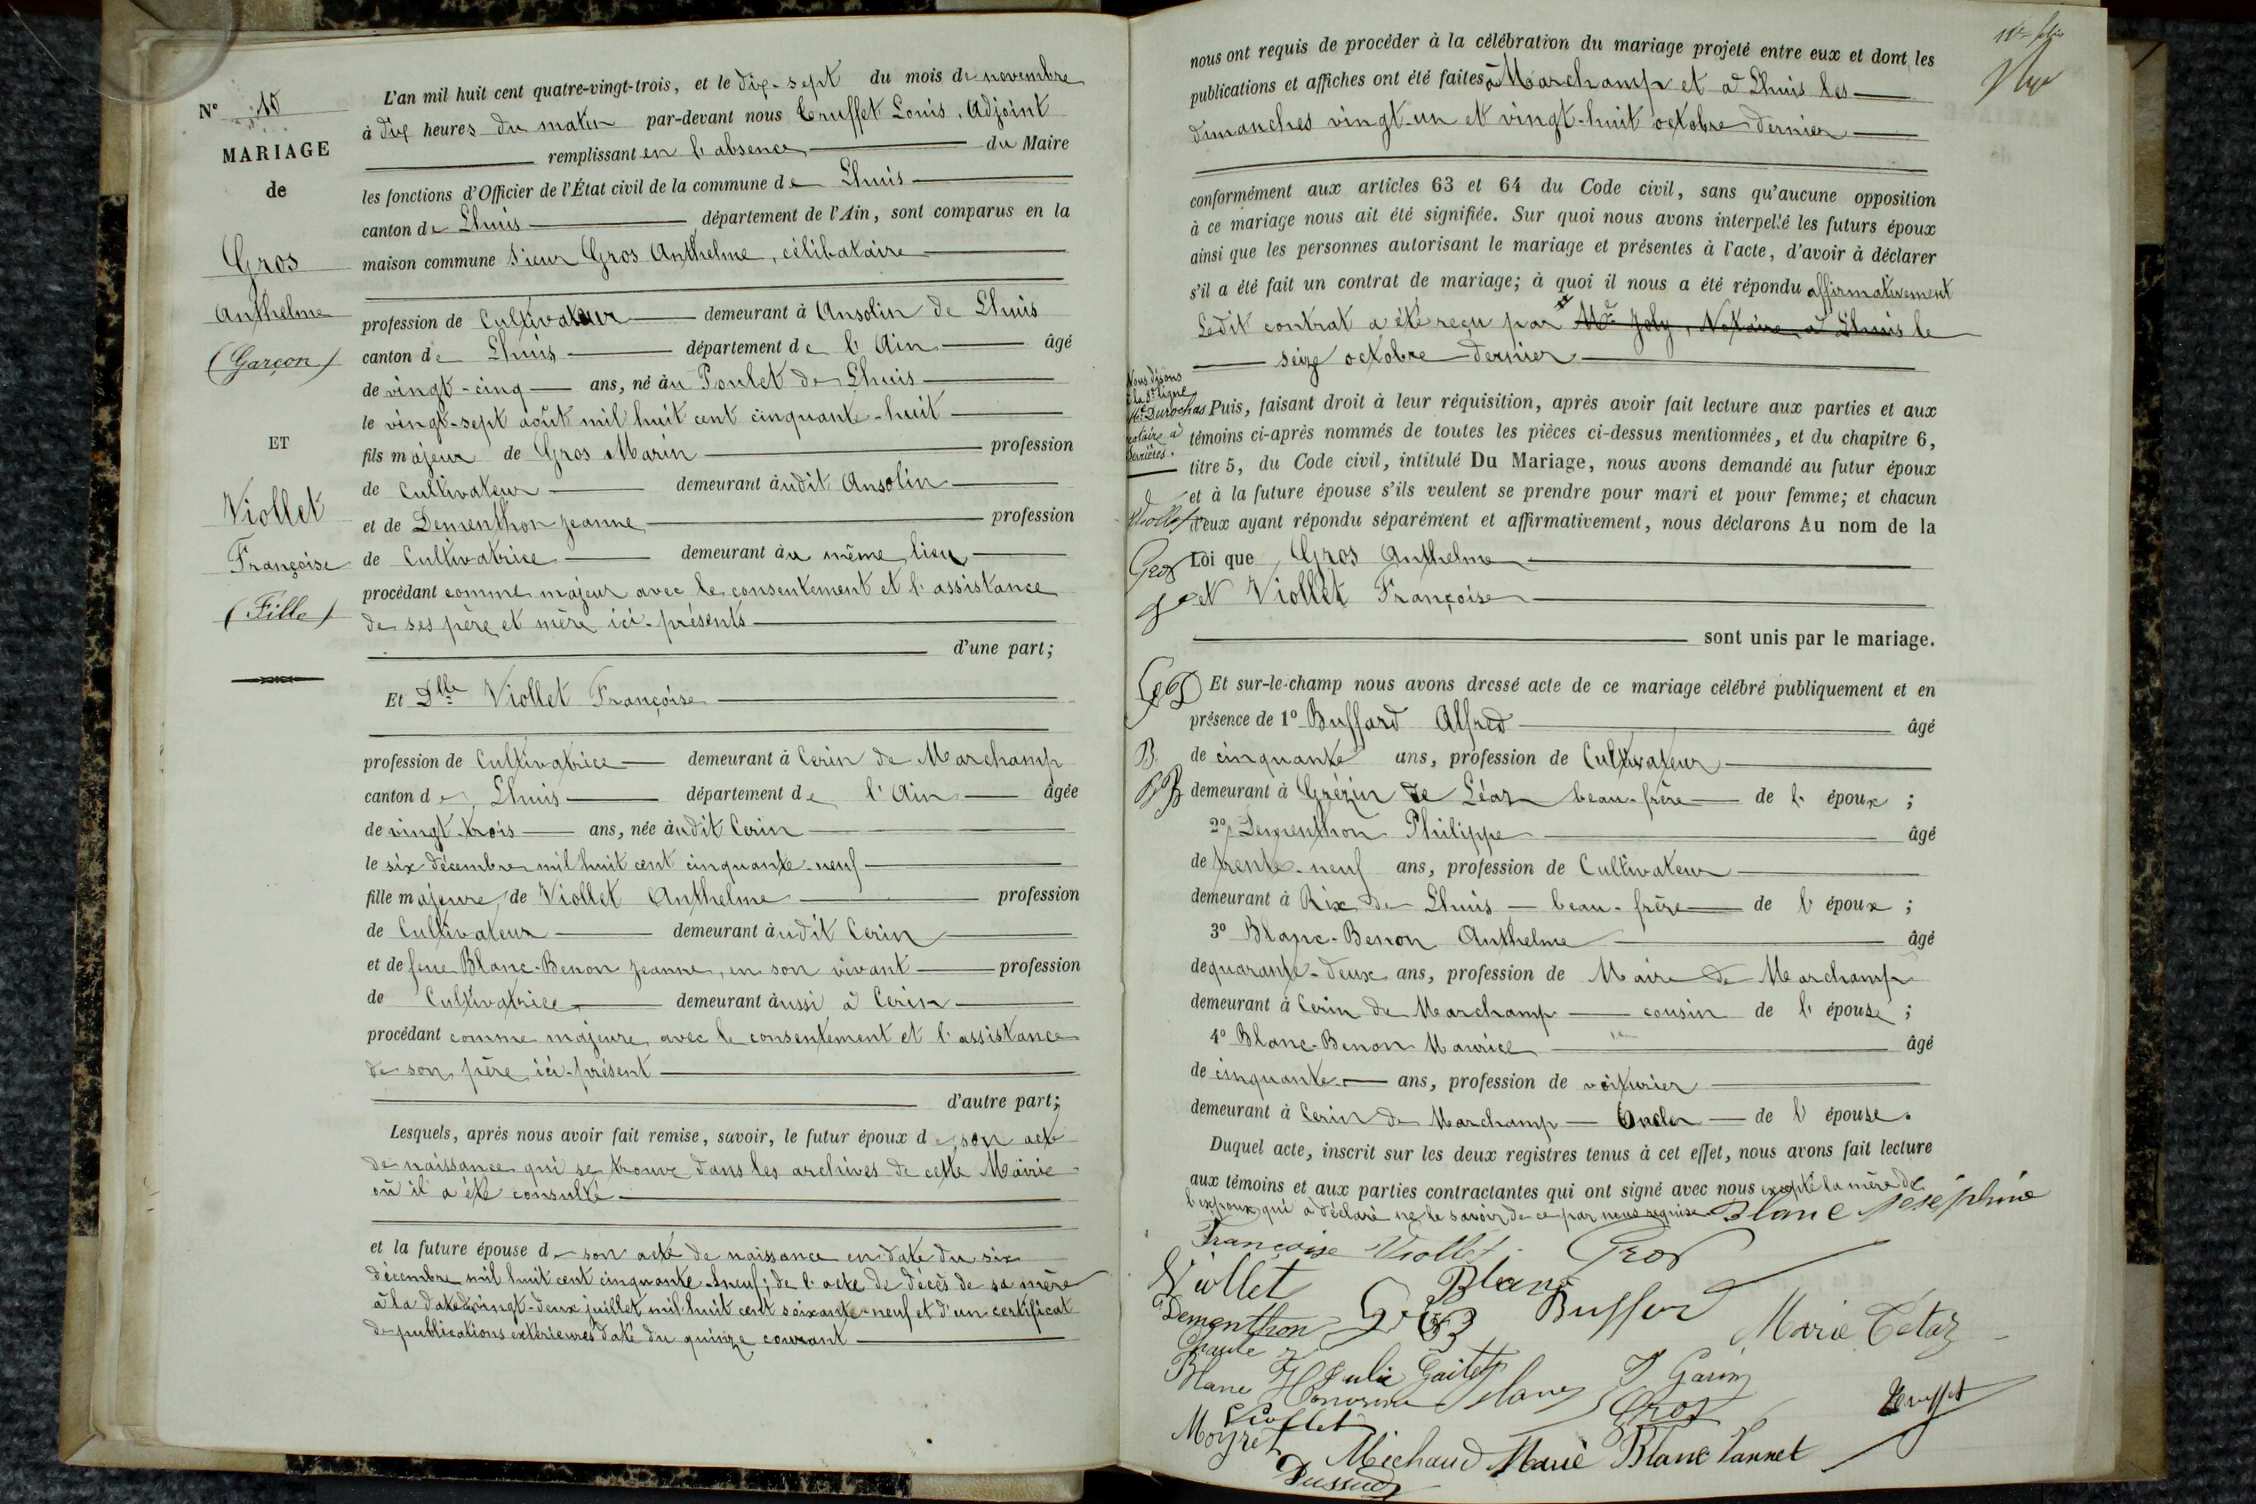 N° 10
MARIAGE
de
Gros
Anthelme
(Garçon)
ET
Viollet
Françoise
(Fille)
L'an mil huit cent quatre-vingt-trois, et le dix-sept du mois de novembre
à dix heures du matin par-devant nous Truffet Louis, Adjoint
remplissant en l'absence du Maire
les fonctions d'Officier de l'État civil de la commune de Lhuis
canton de Lhuis département de l'Ain, sont comparus en la
maison commune Sieur Gros Anthelme, célibataire
profession de Cultivateur demeurant à Ansolin de Lhuis
canton de Lhuis département de l'Ain âgé
de vingt-cinq ans, né àu Poulet de Lhuis
le vingt-sept août mil huit cent cinquante-huit
fils majeur de Gros Marin profession
de Cultivateur demeurant àudit Ansolin
et de Dementhon Jeanne profession
de Cultivatrice demeurant àu même lieu
procédant comme majeur avec le consentement et l'assistance
de ses père et mère ici-présents
d'une part;
Et Dlle Viollet Françoise
profession de Cultivatrice demeurant à Cerin de Marchamp
canton de Lhuis département de l'Ain âgée
de vingt-trois ans, née àudit Cerin
le six décembre mil huit cent cinquante-neuf
fille majeure de Viollet Anthelme profession
de Cultivateur demeurant àudit Cerin
et de feue Blanc-Benon Jeanne, en son vivant profession
de Cultivatrice demeurant àussi à Cerin
procédant comme majeure avec le consentement et l'assistance
de son père ici-présent
d'autre part;
Lesquels, après nous avoir fait remise, savoir, le futur époux de son acte
de naissance qui se trouve dans les archives de cette Mairie
où il a été consulté
et la future épouse de son acte de naissance en date du six
décembre mil huit cent cinquante-neuf; de l'acte de décès de sa mère
à la date du vingt-deux juillet mil huit cent soixante-neuf et d'un certificat
de publications extérieures daté du quinze courant
nous ont requis de procéder à la célébration du mariage projeté entre eux et dont les
publications et affiches ont été faites à Marchamp et à Lhuis les
dimanches vingt-un et vingt-huit octobre dernier
conformément aux articles 63 et 64 du Code civil, sans qu'aucune opposition
à ce mariage nous ait été signifiée. Sur quoi nous avons interpellé les futurs époux
ainsi que les personnes autorisant le mariage et présentes à l'acte, d'avoir à déclarer
s'il a été fait un contrat de mariage; à quoi il nous a été répondu affirmativement
Ledit contrat a été reçu par Me Joly, Notaire à Lhuis le
seize octobre dernier
Nous disons
à la 8e ligne
Me Durochas
notaire à
Serrières.
Puis, faisant droit à leur réquisition, après avoir fait lecture aux parties et aux
témoins ci-après nommés de toutes les pièces ci-dessus mentionnées, et du chapitre 6,
titre 5, du Code civil, intitulé Du Mariage, nous avons demandé au futur époux
et à la future épouse s'ils veulent se prendre pour mari et pour femme; et chacun
d'eux ayant répondu séparément et affirmativement, nous déclarons Au nom de la
Viollet
Gros
Loi que Gros Anthelme
et Viollet Françoise
sont unis par le mariage.
Et sur-le-champ nous avons dressé acte de ce mariage célébré publiquement et en
présence de 1° Buffard Alfred âgé
B.
de cinquante ans, profession de Cultivateur
demeurant à Grézin de Léaz beau-frère de l'époux;
2° Dementhon Philippe âgé
de trente-neuf ans, profession de Cultivateur
demeurant à Rix de Lhuis beau-frère de l'époux;
3° Blanc-Benon Anthelme âgé
de quarante-deux ans, profession de Maire de Marchamp
demeurant à Cerin de Marchamp cousin de l'épouse;
4° Blanc-Benon Maurice âgé
de cinquante ans, profession de voiturier
demeurant à Cerin de Marchamp Oncle de l'épouse.
Duquel acte, inscrit sur les deux registres tenus à cet effet, nous avons fait lecture
aux témoins et aux parties contractantes qui ont signé avec nous excepté la mère de
l'époux qui a déclaré ne le savoir de ce par nous requise Blanc Joséphine
Françoise Viollet Gros
Viollet Blanc
Dementhon Gros Buffard Marie Cétaz
Blanc Julie Gaitet J Garin
Honorine Blanc Gros Truffet
Viollet
Moyret Michaud Marie Blanc Pannet
Dussud